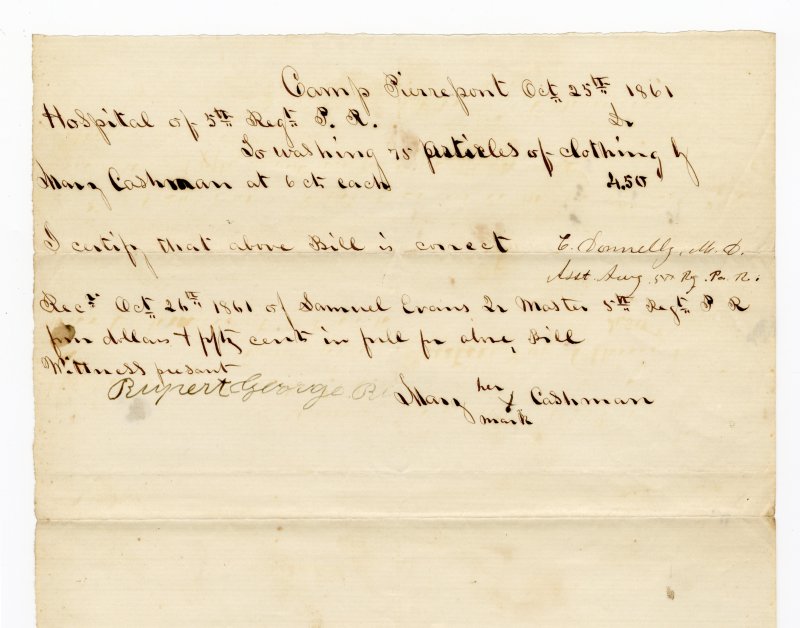 Camp Pierrepont Oct 25th 1861
Hospital of 5th Regt P. R. Dr
To washing 75 articles of clothing by
Mary Cashman at 6 cts each 4.50
I certify that above Bill is correct C. Donnelly, M. D.
Asst Surg. 5th Rg. Pa. R.
Recd Oct 26th 1861 of Samuel Evans Qr Master 5th Regt P R
four dollars & fifty cents in full for above Bill
Wittness present
Rupert George
Mary her X mark Cashman